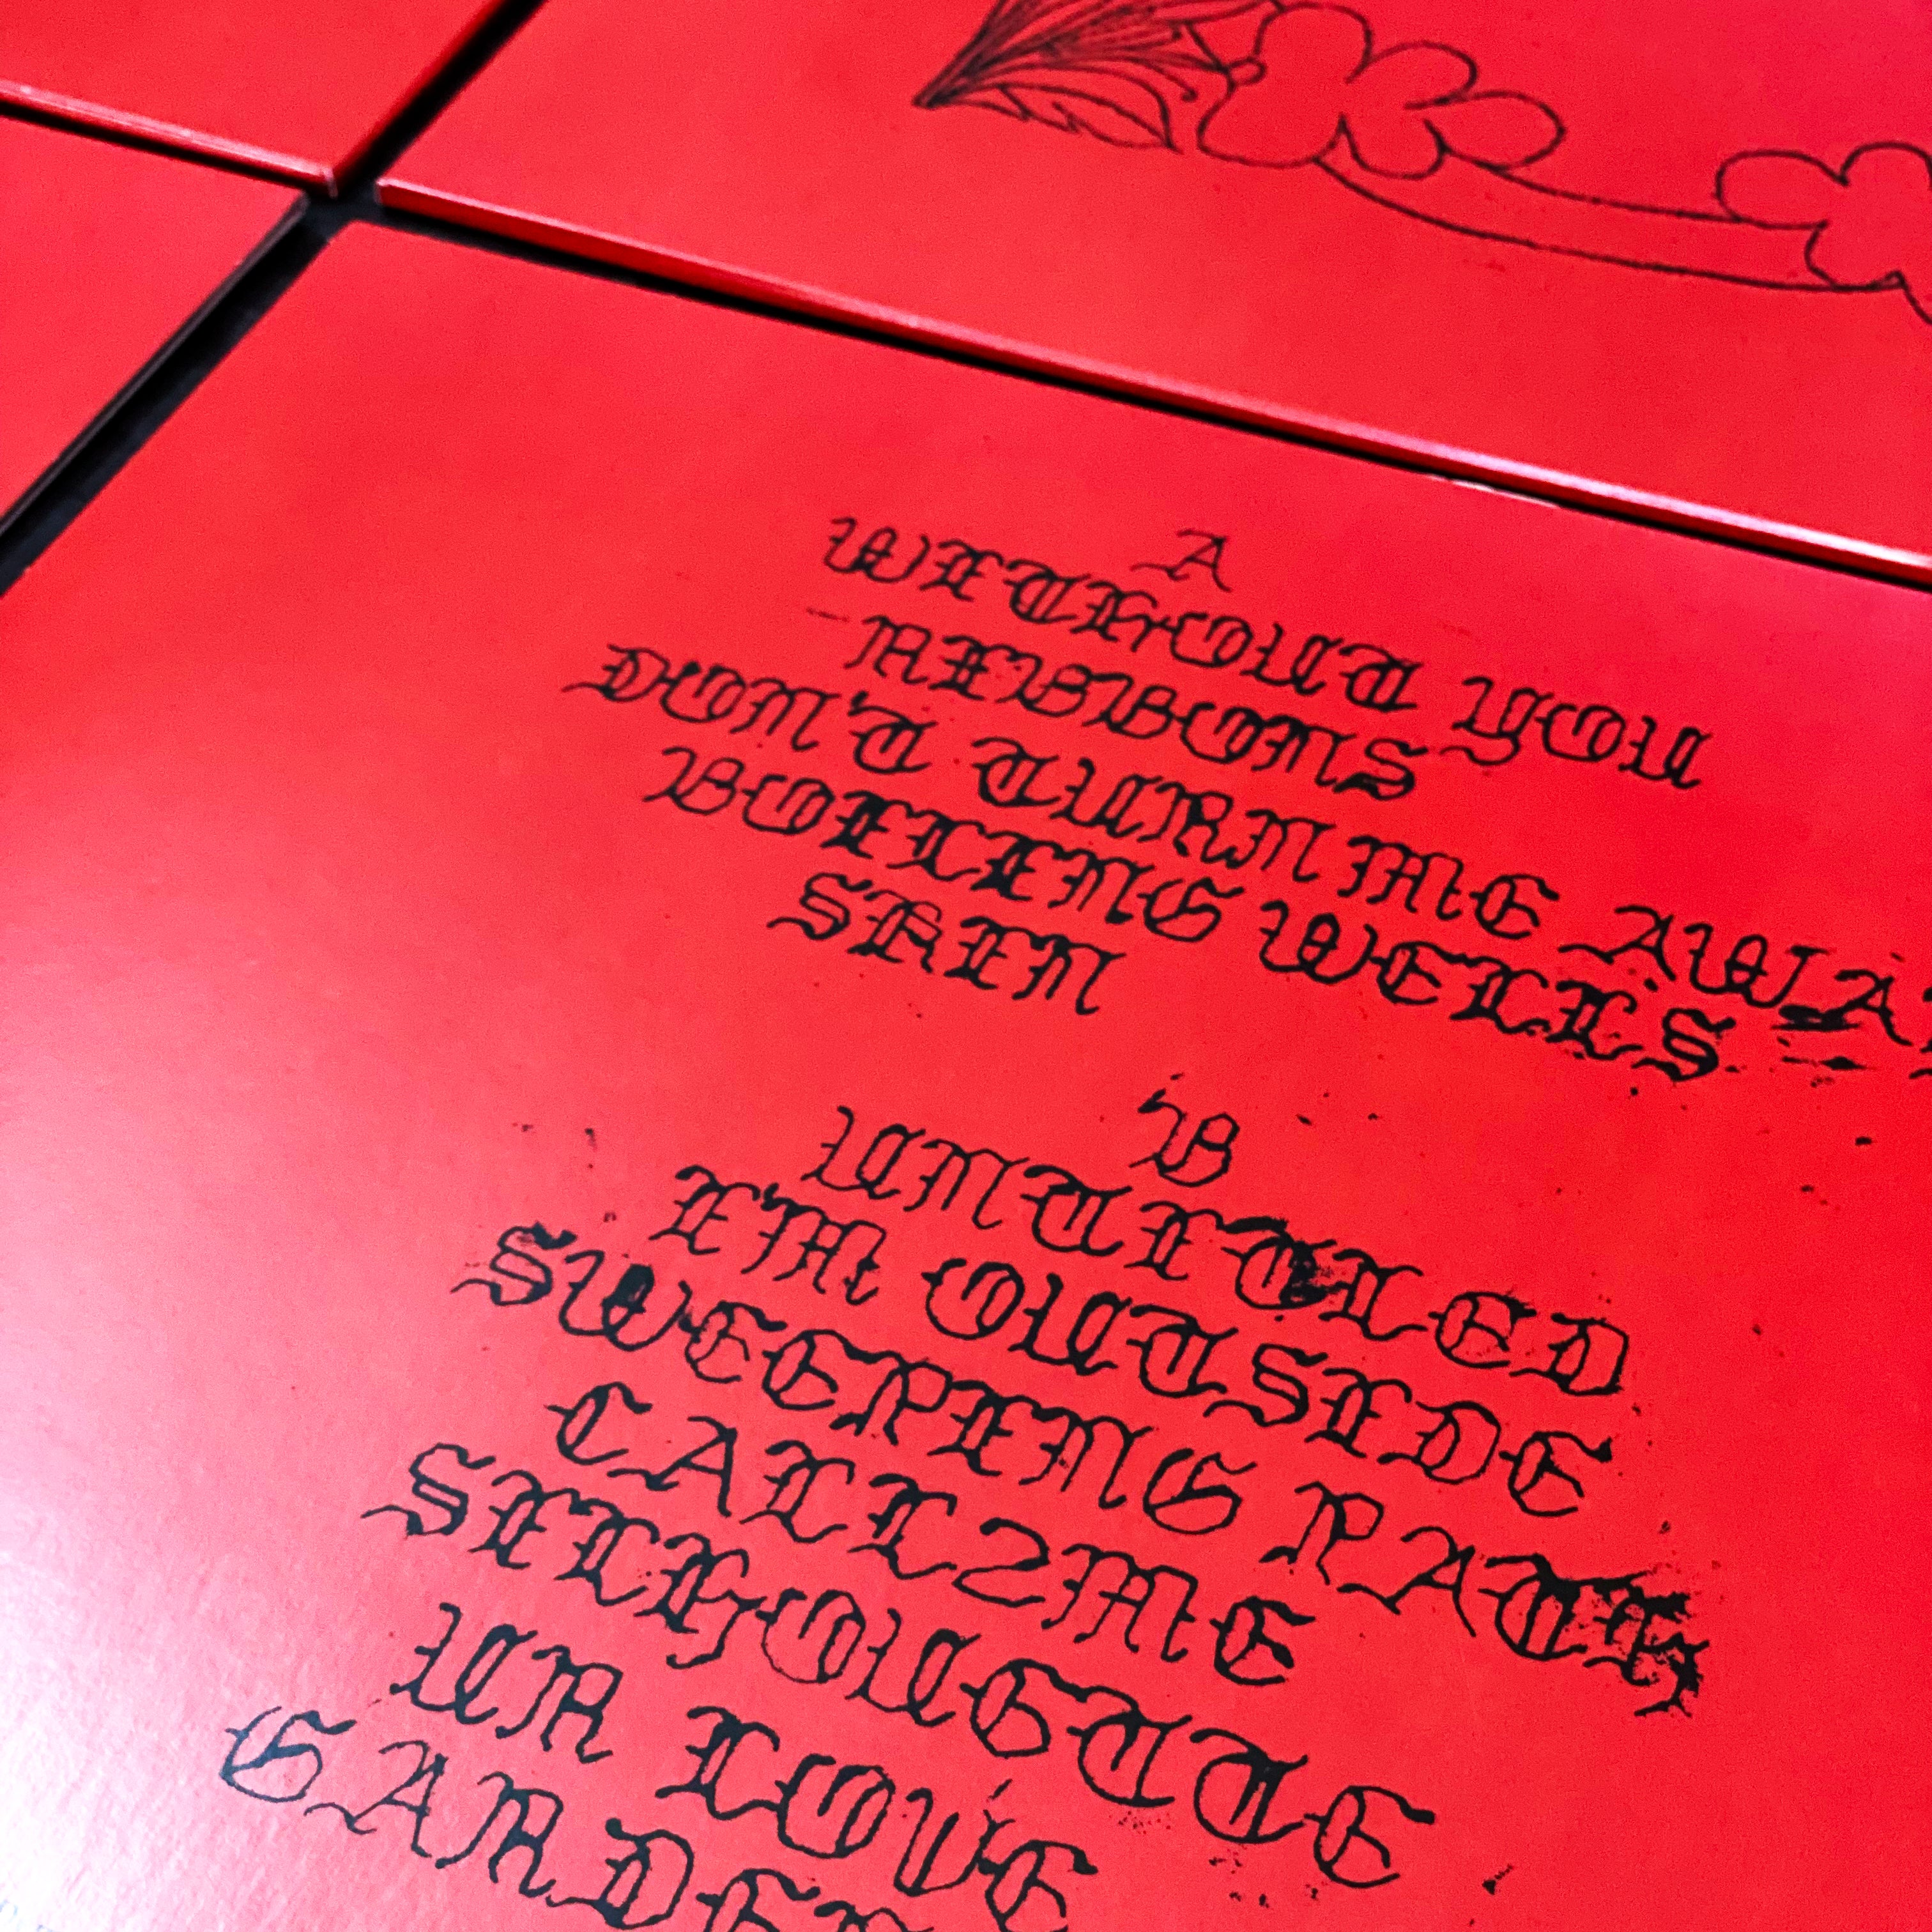 A
WITHOUT YOU
RIBBONS
DON'T TURN ME AWAY
BOILING WELLS
SKIN
B
UNTITLED
I'M OUTSIDE
SWEEPING PATH
CALL2ME
SILHOUETTE
UR LOVE
GARDEN